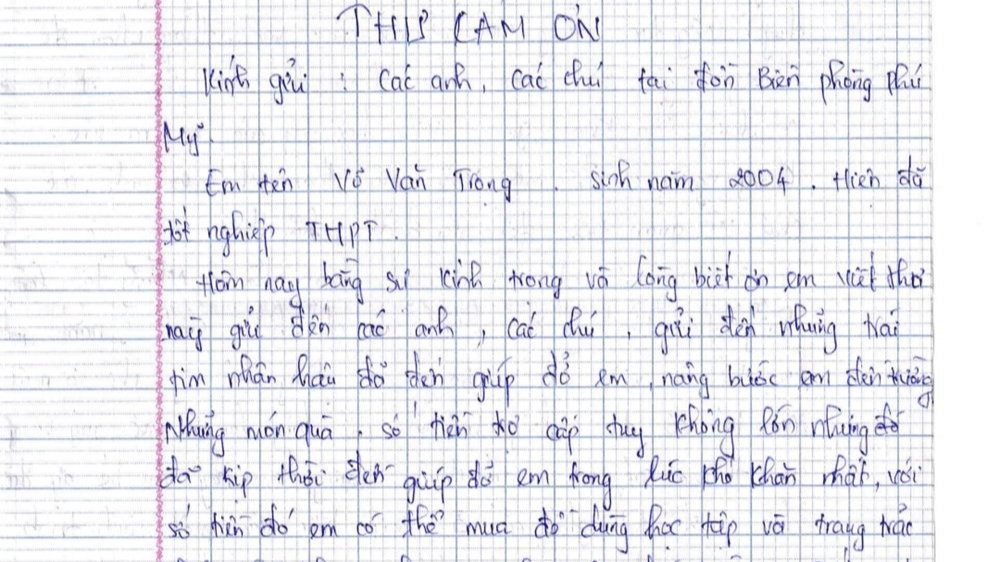 THƯ CẢM ƠN
Kính gửi : Các anh, các chú tại đồn Biên phòng Phú
Mỹ.
Em tên Võ Văn Trọng. sinh năm 2004. Hiện đã
tốt nghiệp THPT.
Hôm nay bằng sự kính trọng và lòng biết ơn em viết thư
này gửi đến các anh, các chú, gửi đến những trái
tim nhân hậu đã đến giúp đỡ em, nâng bước em đến trường
Những món quà, số tiền trợ cấp tuy không lớn nhưng đó
đã kịp thời đến giúp đỡ em trong lúc khó khăn nhất, với
số tiền đó em có thể mua đồ dùng học tập và trang trắc